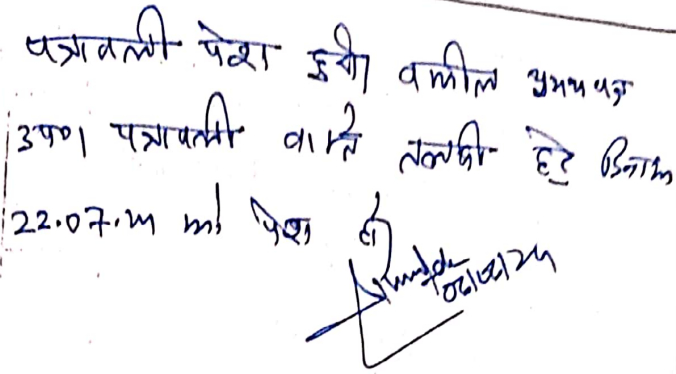 पत्रावली पेश हुयी। वकील उभयपक्ष
उप०। पत्रावली वास्ते तलबी हेतु दिनांक
22.07.24 को पेश हो